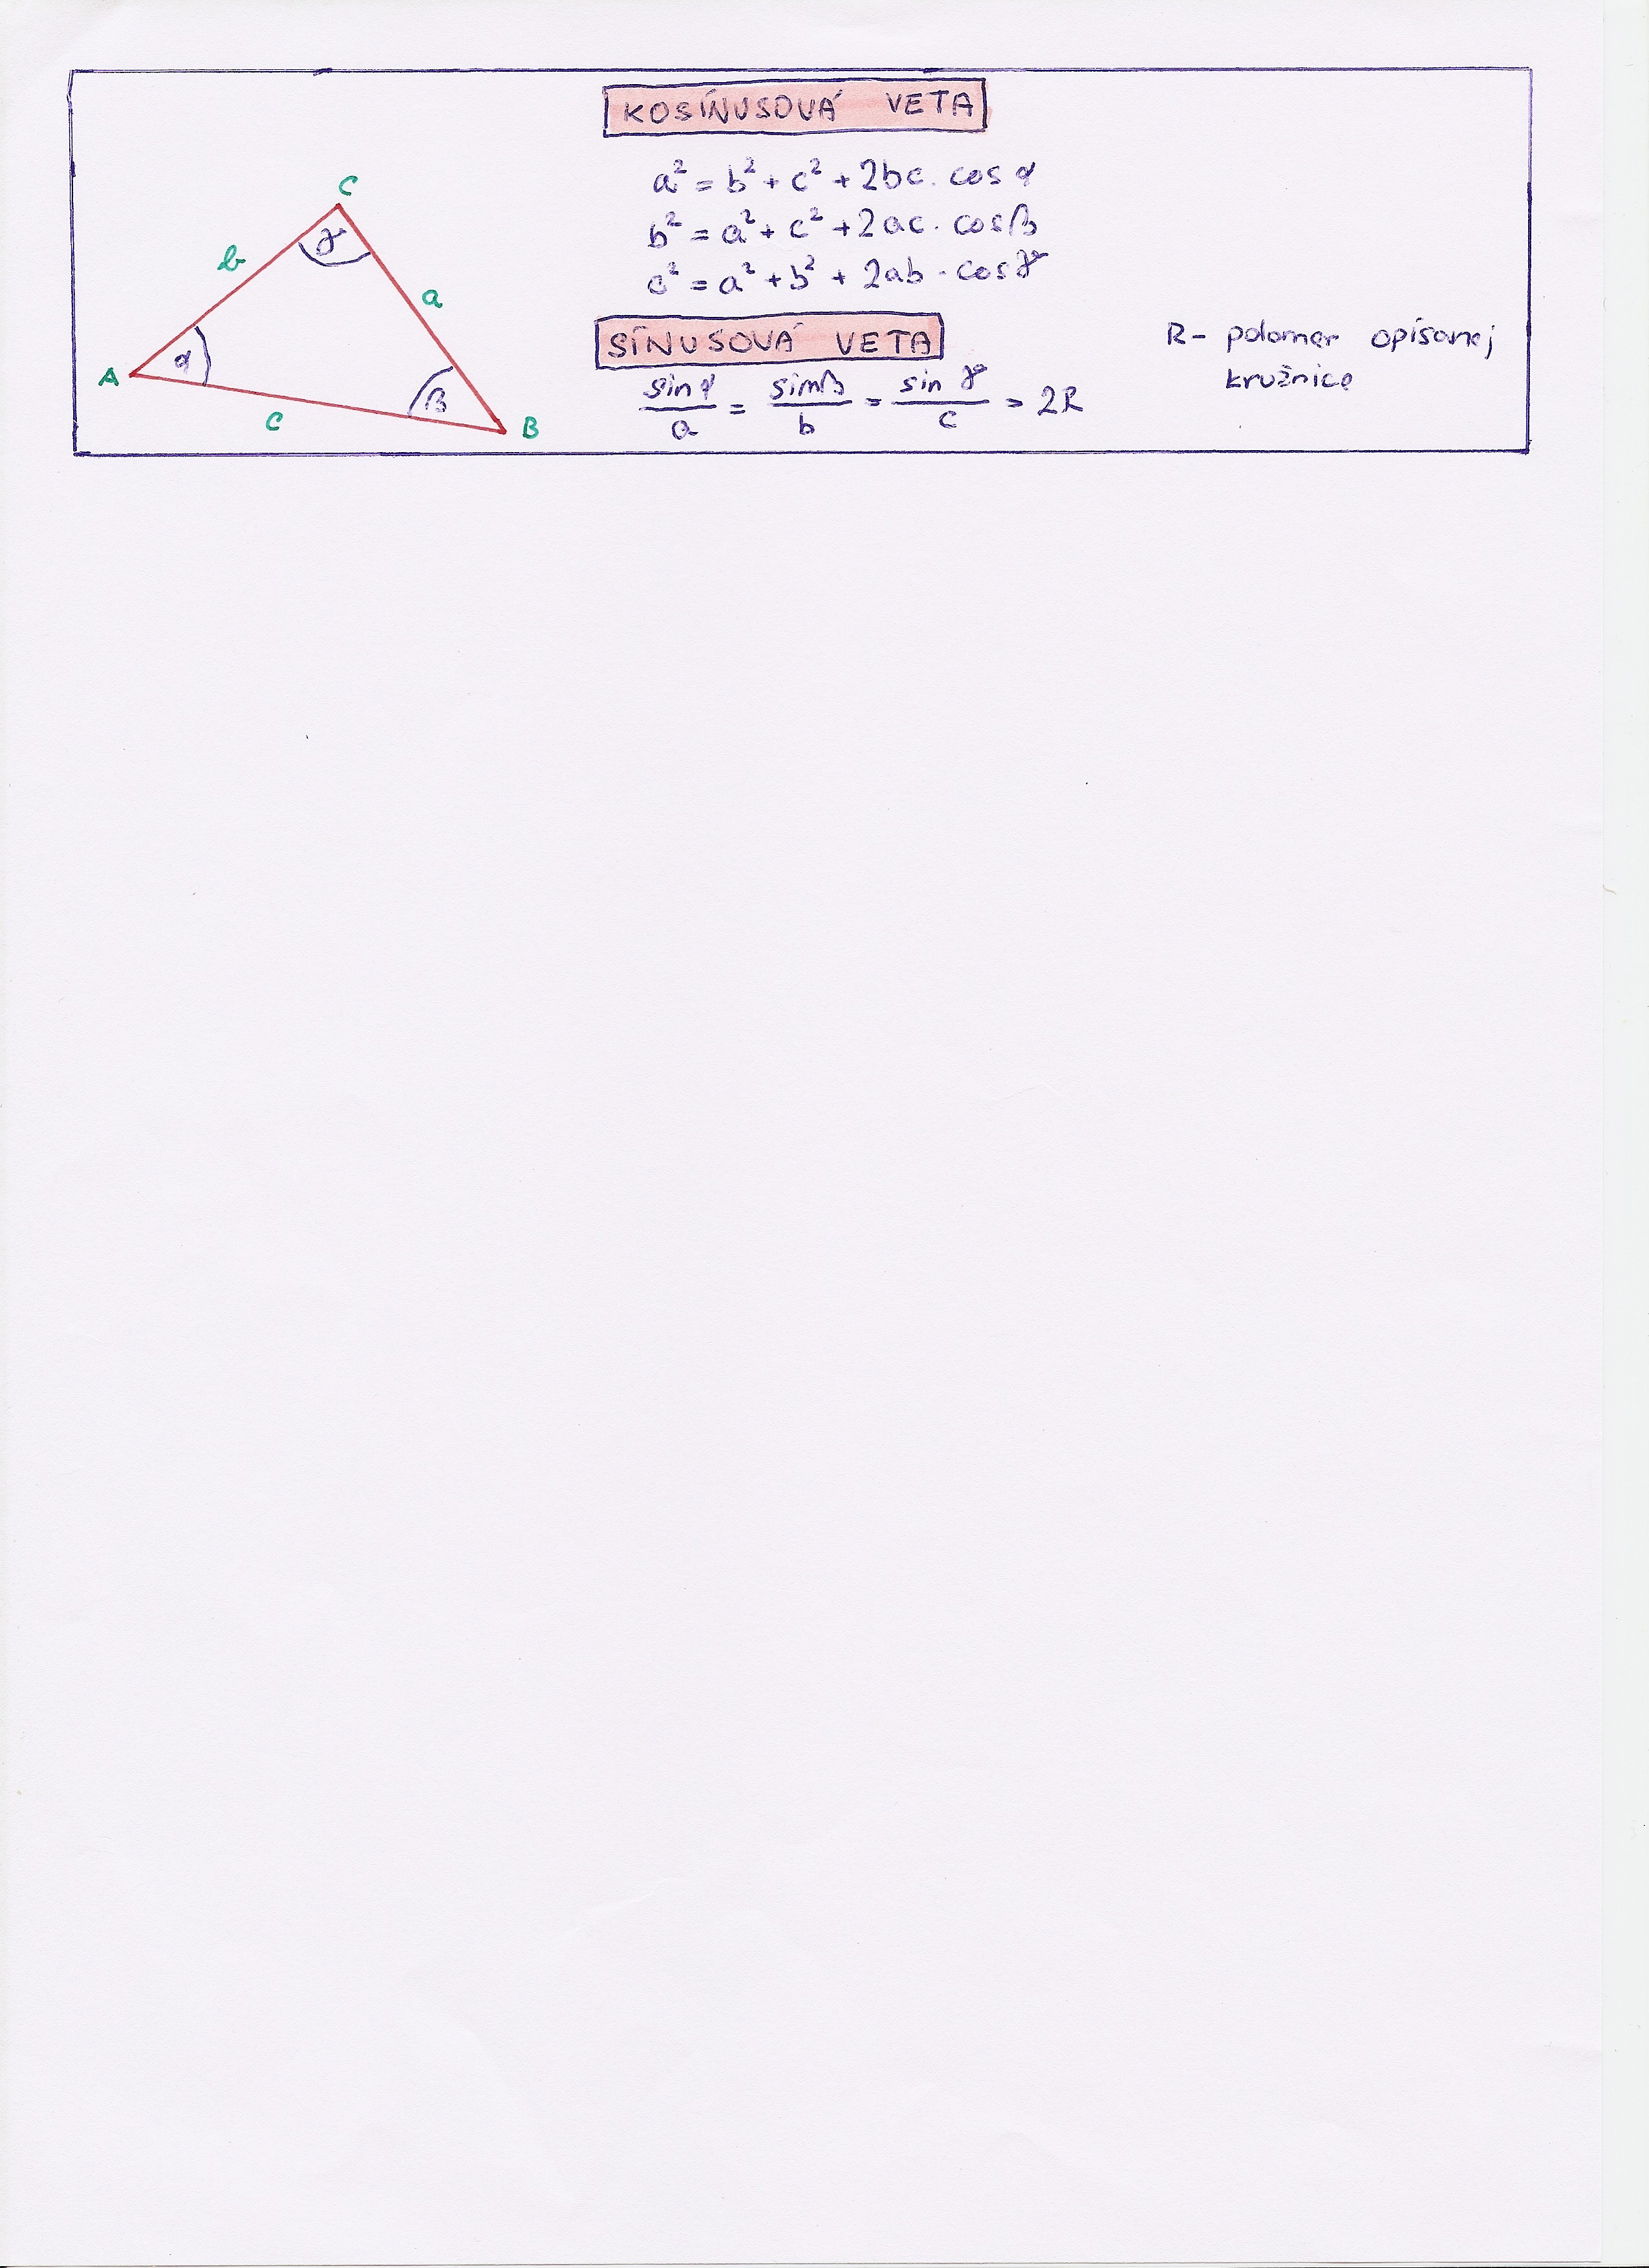 KOSÍNUSOVÁ VETA
a² = b² + c² + 2bc. cos α
b² = a² + c² + 2ac. cosβ
c² = a² + b² + 2ab · cosγ
SÍNUSOVÁ VETA
sin α / a = sinβ / b = sin γ / c = 2R
R- polomer opísanej
kružnice
C
γ
b
a
A
α
c
β
B